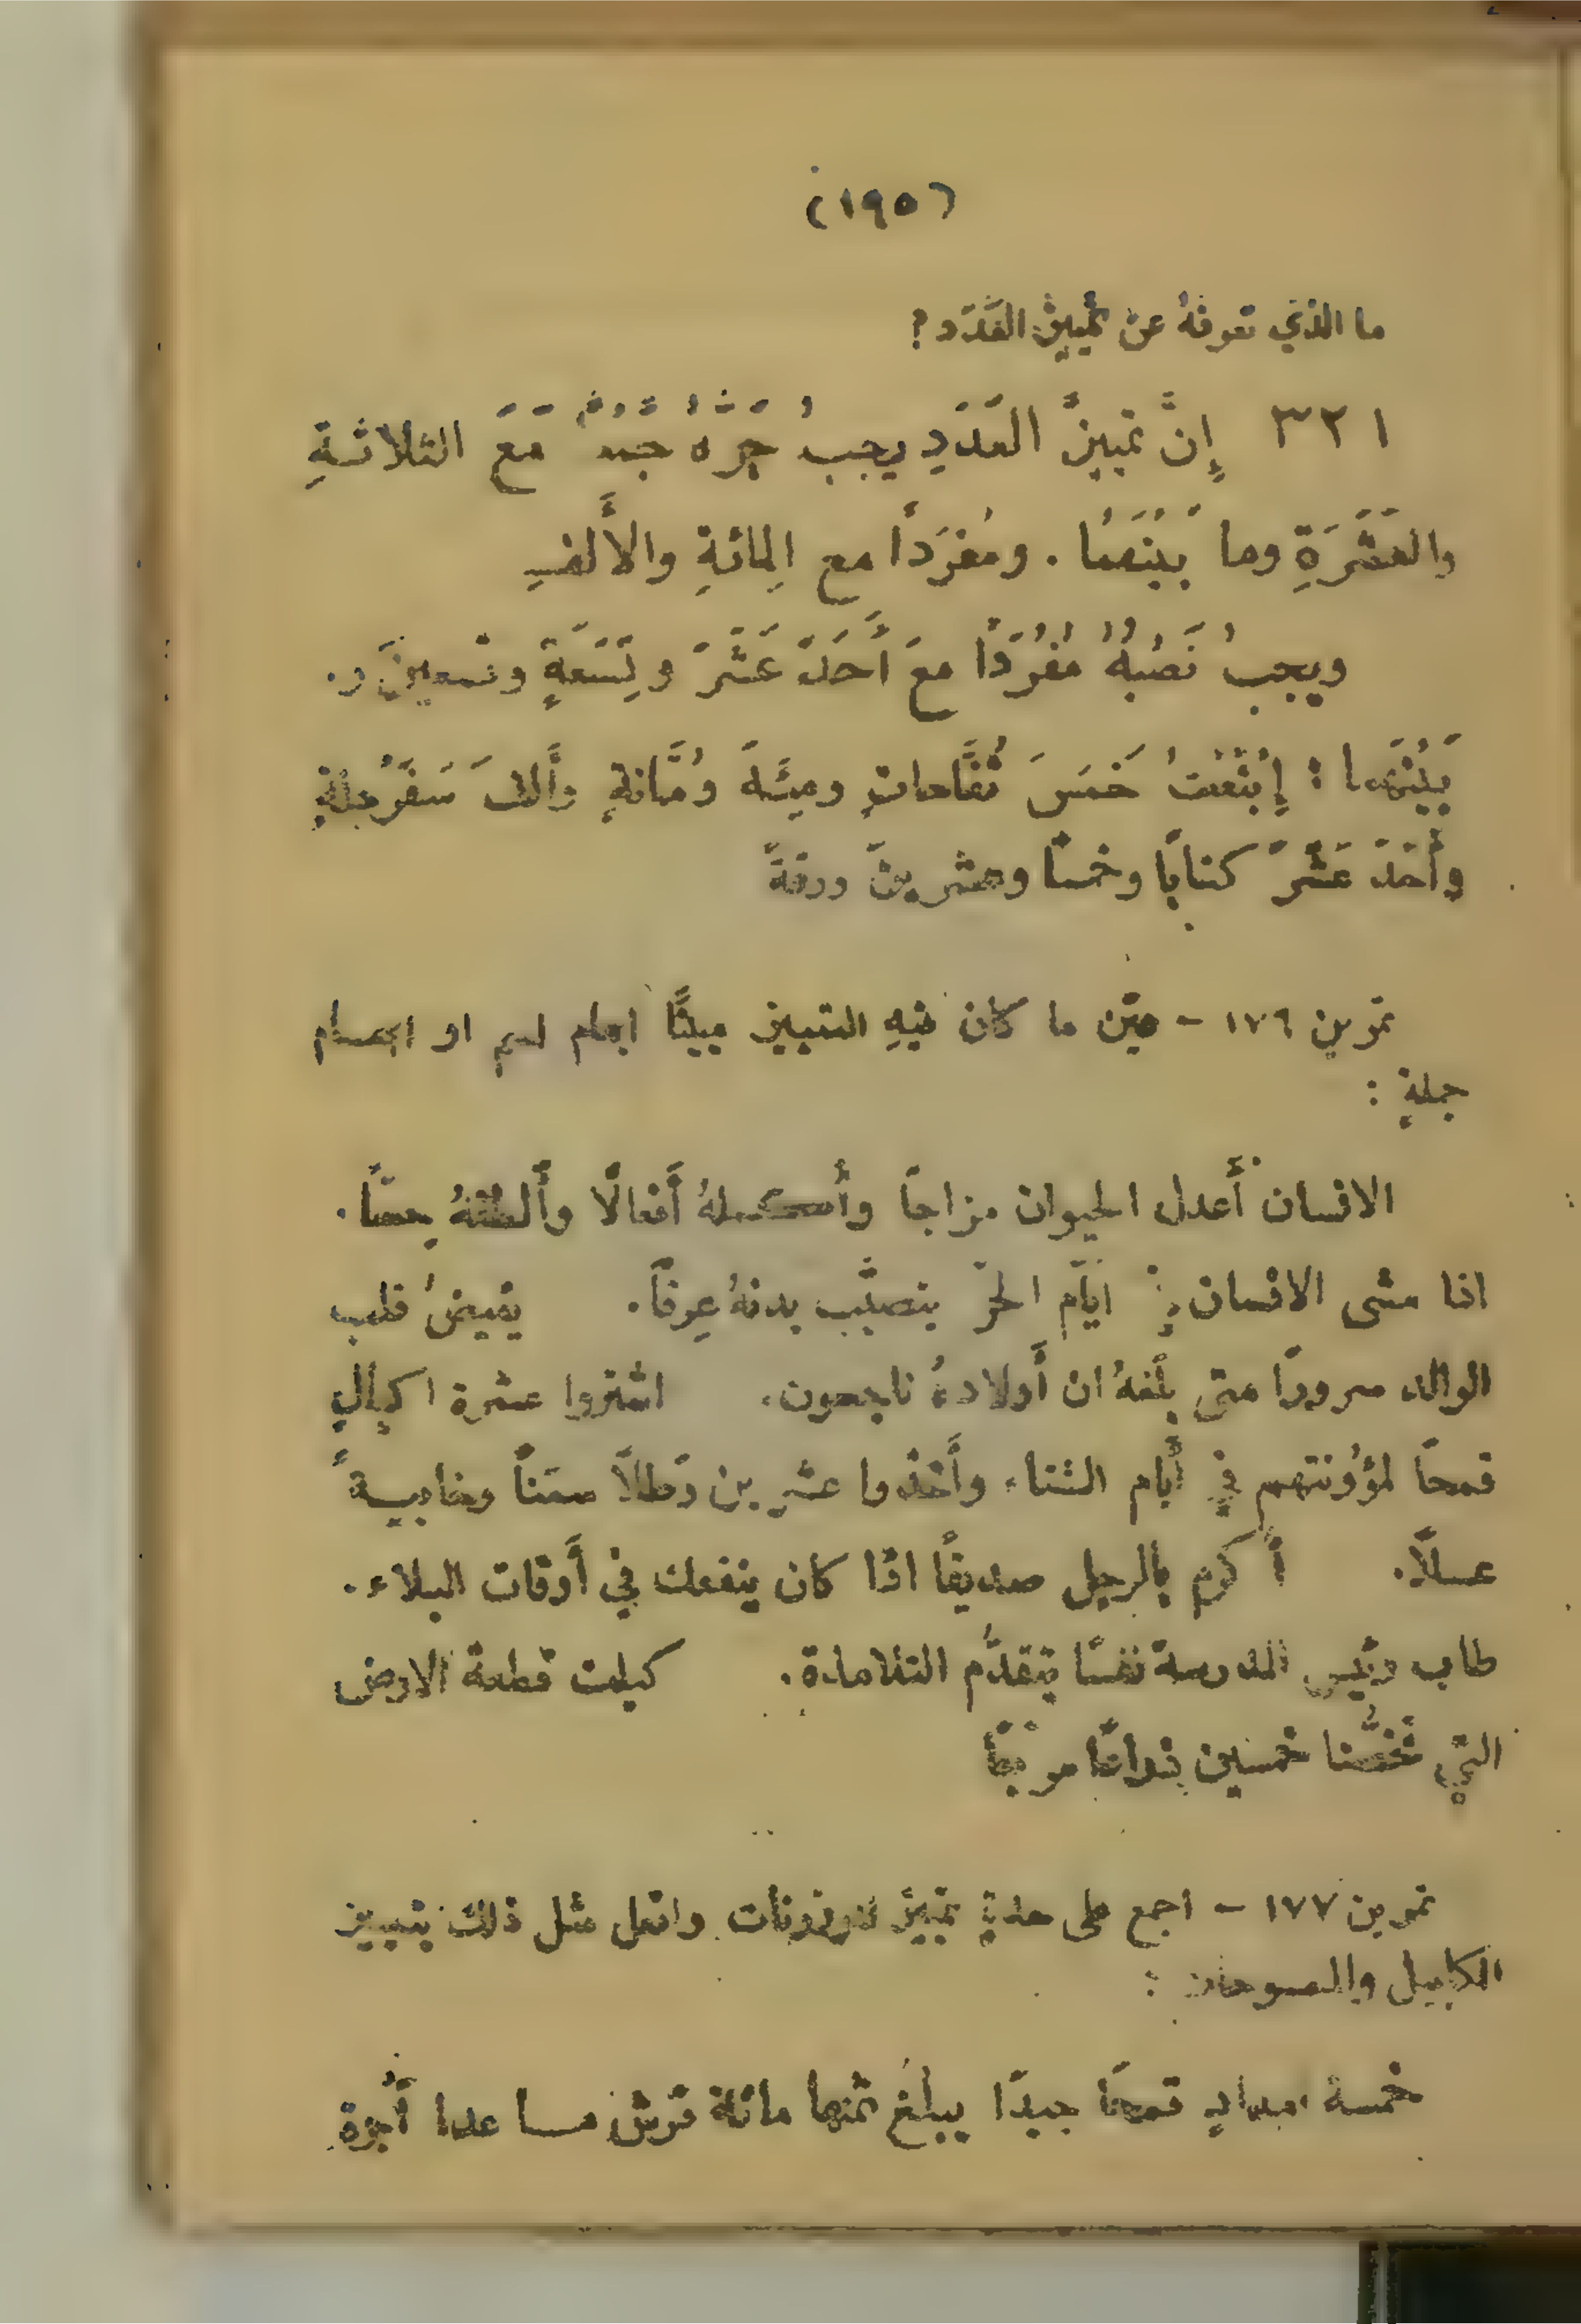 (١٩٥)
ما الذي تعرفهُ عن تمييز العَدَد؟
٣٢١ إِنَّ تمييزَ العَدَدِ يجبُ جَرّه جمعًا مَعَ الثلاثةِ
والعَشَرَةِ وما بَيْنَهُمَا . ومُفرَداً مع المِائةِ والأَلفِ
ويجبُ نَصْبُهُ مُفْرَدًا معَ أَحَدَ عَشَرَ وتِسْعَةٍ وتسعينَ وما
بَيْنَهما : إِبْتَعْتُ خَمسَ تُفَّاحاتٍ ومِئَةَ رُمَّانةٍ وأَلفَ سَفَرْجلةٍ
وأَحَدَ عَشَرَ كتابًا وخمسًا وعشرينَ ورقةً
تمرين ١٧٦ – عيّن ما كان فيهِ التمييز مبينًا ابهام اسم او ابهام
جملةٍ :
الانسان أَعدل الحيوان مزاجاً وأَكملهُ أَفعالًا وأَلطفهُ حسًّا.
اذا مشى الانسان في ايّام الحرّ يتصبَّب بدنهُ عرقًا. يفيضُ قلب
الوالد سرورًا متى بلغهُ ان أَولادهُ ناجحون. اشتروا عشرة اكيالٍ
قمحًا لمؤُونتهم في أَيام الشتاء وأَخذوا عشرين رطلًا سمنًا وخابيةً
عسلًا. أَكرِم بالرجل صديقًا اذا كان ينفعك في أَوقات البلاء.
طاب رئيس المدرسة نفسًا بتقدُّم التلامذة. كيلت قطعة الارض
التي تخصُّنا خمسين ذراعًا مربّعًا
تمرين ١٧٧ – اجمع على حدةٍ تمييز الموزونات وافعل مثل ذلك بتمييز
المكاييل والممسوحات :
خمسة امدادٍ قمحًا جيدًا يبلغ ثمنها مائة قرش ما عدا أُجرة